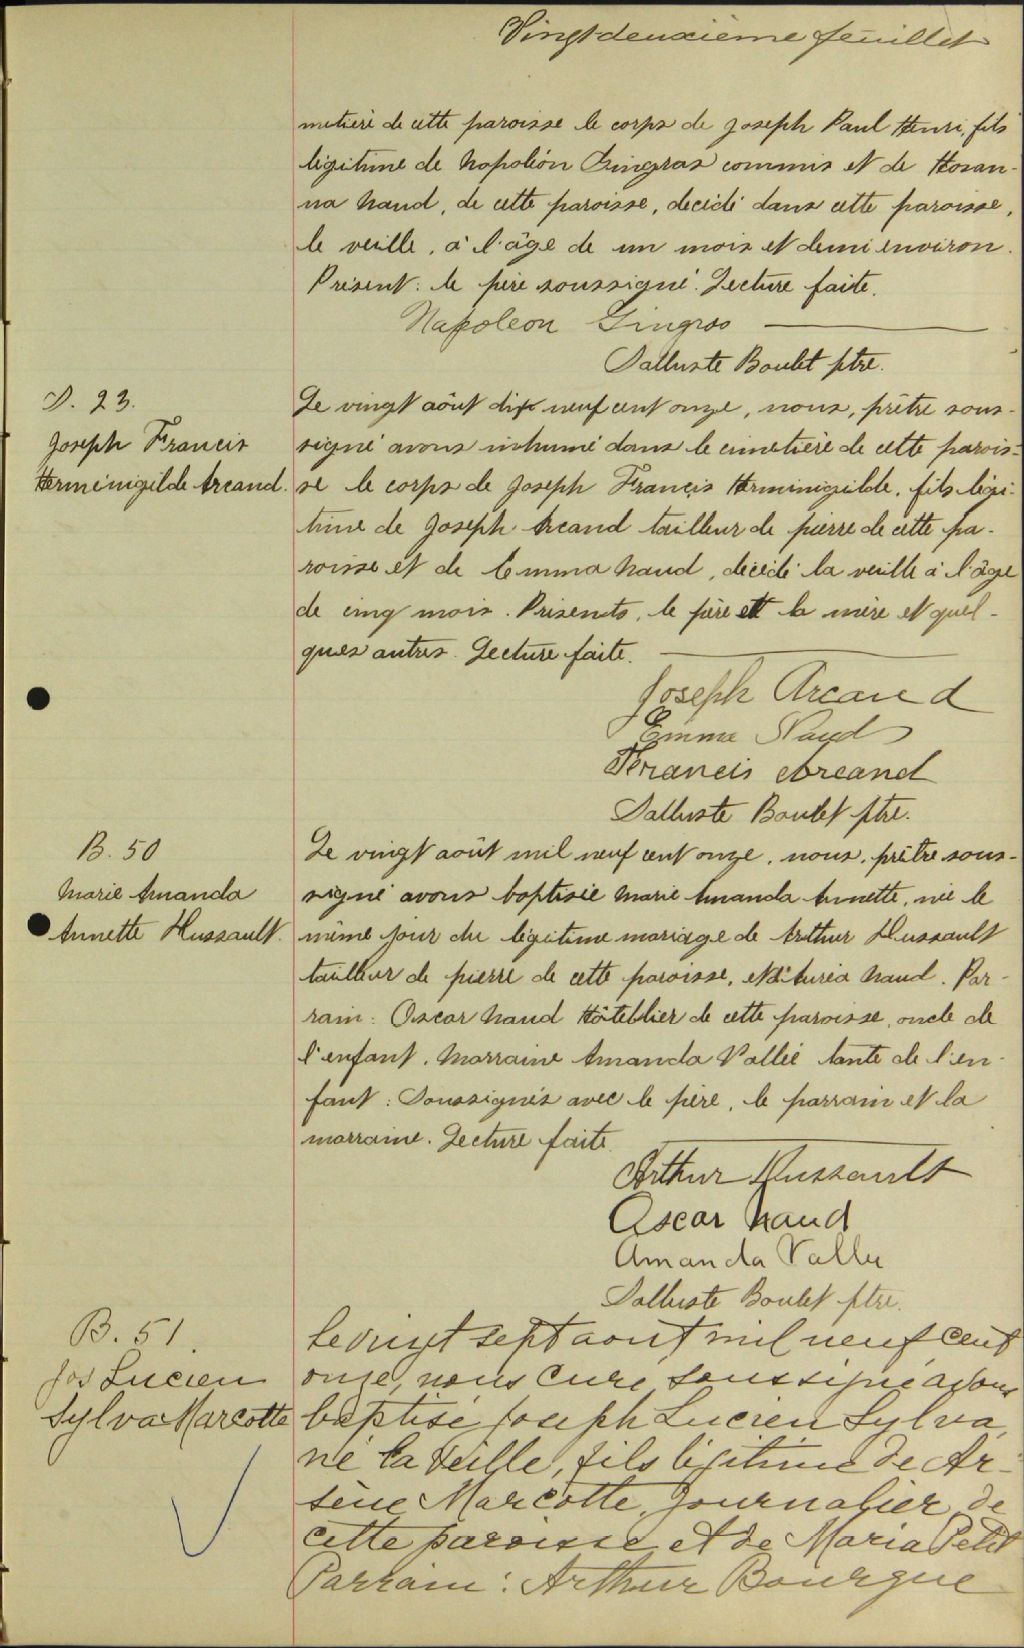 Vingt-deuxième feuillet
metière de cette paroisse le corps de Joseph Paul Henri, fils
légitime de Napoléon Gingras commis et de Hosan-
na Naud, de cette paroisse, décédé dans cette paroisse,
le veille, à l'âge de un mois et demi environ.
Présent: le père soussigné. Lecture faite.
Napoleon Gingras
Salluste Boulet ptre.
S. 23.
Joseph Francis
Herménigilde Arcand.
Le vingt août dix neuf cent onze, nous, prêtre sous-
signé avons inhumé dans le cimetière de cette parois-
se le corps de Joseph Francis Herminigilde, fils légi-
time de Joseph Arcand tailleur de pierre de cette pa-
roisse et de Emma Naud, décédé la veille à l'âge
de cinq mois. Présents, le père et la mère et quel-
ques autres. Lecture faite.
Joseph Arcand
Emma Naud
Francis Arcand
Salluste Boulet ptre.
B. 50
Marie Amanda
Annette Dussault.
Le vingt août mil neuf cent onze, nous, prêtre sous-
signé avons baptisée Marie Amanda Annette, née le
même jour du légitime mariage de Arthur Dussault
tailleur de pierre de cette paroisse, et d'Auréa Naud. Par-
rain: Oscar Naud Hôtelier de cette paroisse, oncle de
l'enfant. Marraine Amanda Vallée tante de l'en-
fant: Soussignés avec le père, le parrain et la
marraine. Lecture faite.
Arthur Dussault
Oscar Naud
Amanda Vallee
Salluste Boulet ptre.
B. 51.
Jos Lucien
Sylva Marcotte
Le vingt sept aout mil neuf cent
onze, nous Curé soussigné avons
baptisé Joseph Lucien Sylva,
né la veille, fils légitime de Ar-
sène Marcotte, journalier de
cette paroisse et de Maria Petit
Parrain: Arthur Bourque